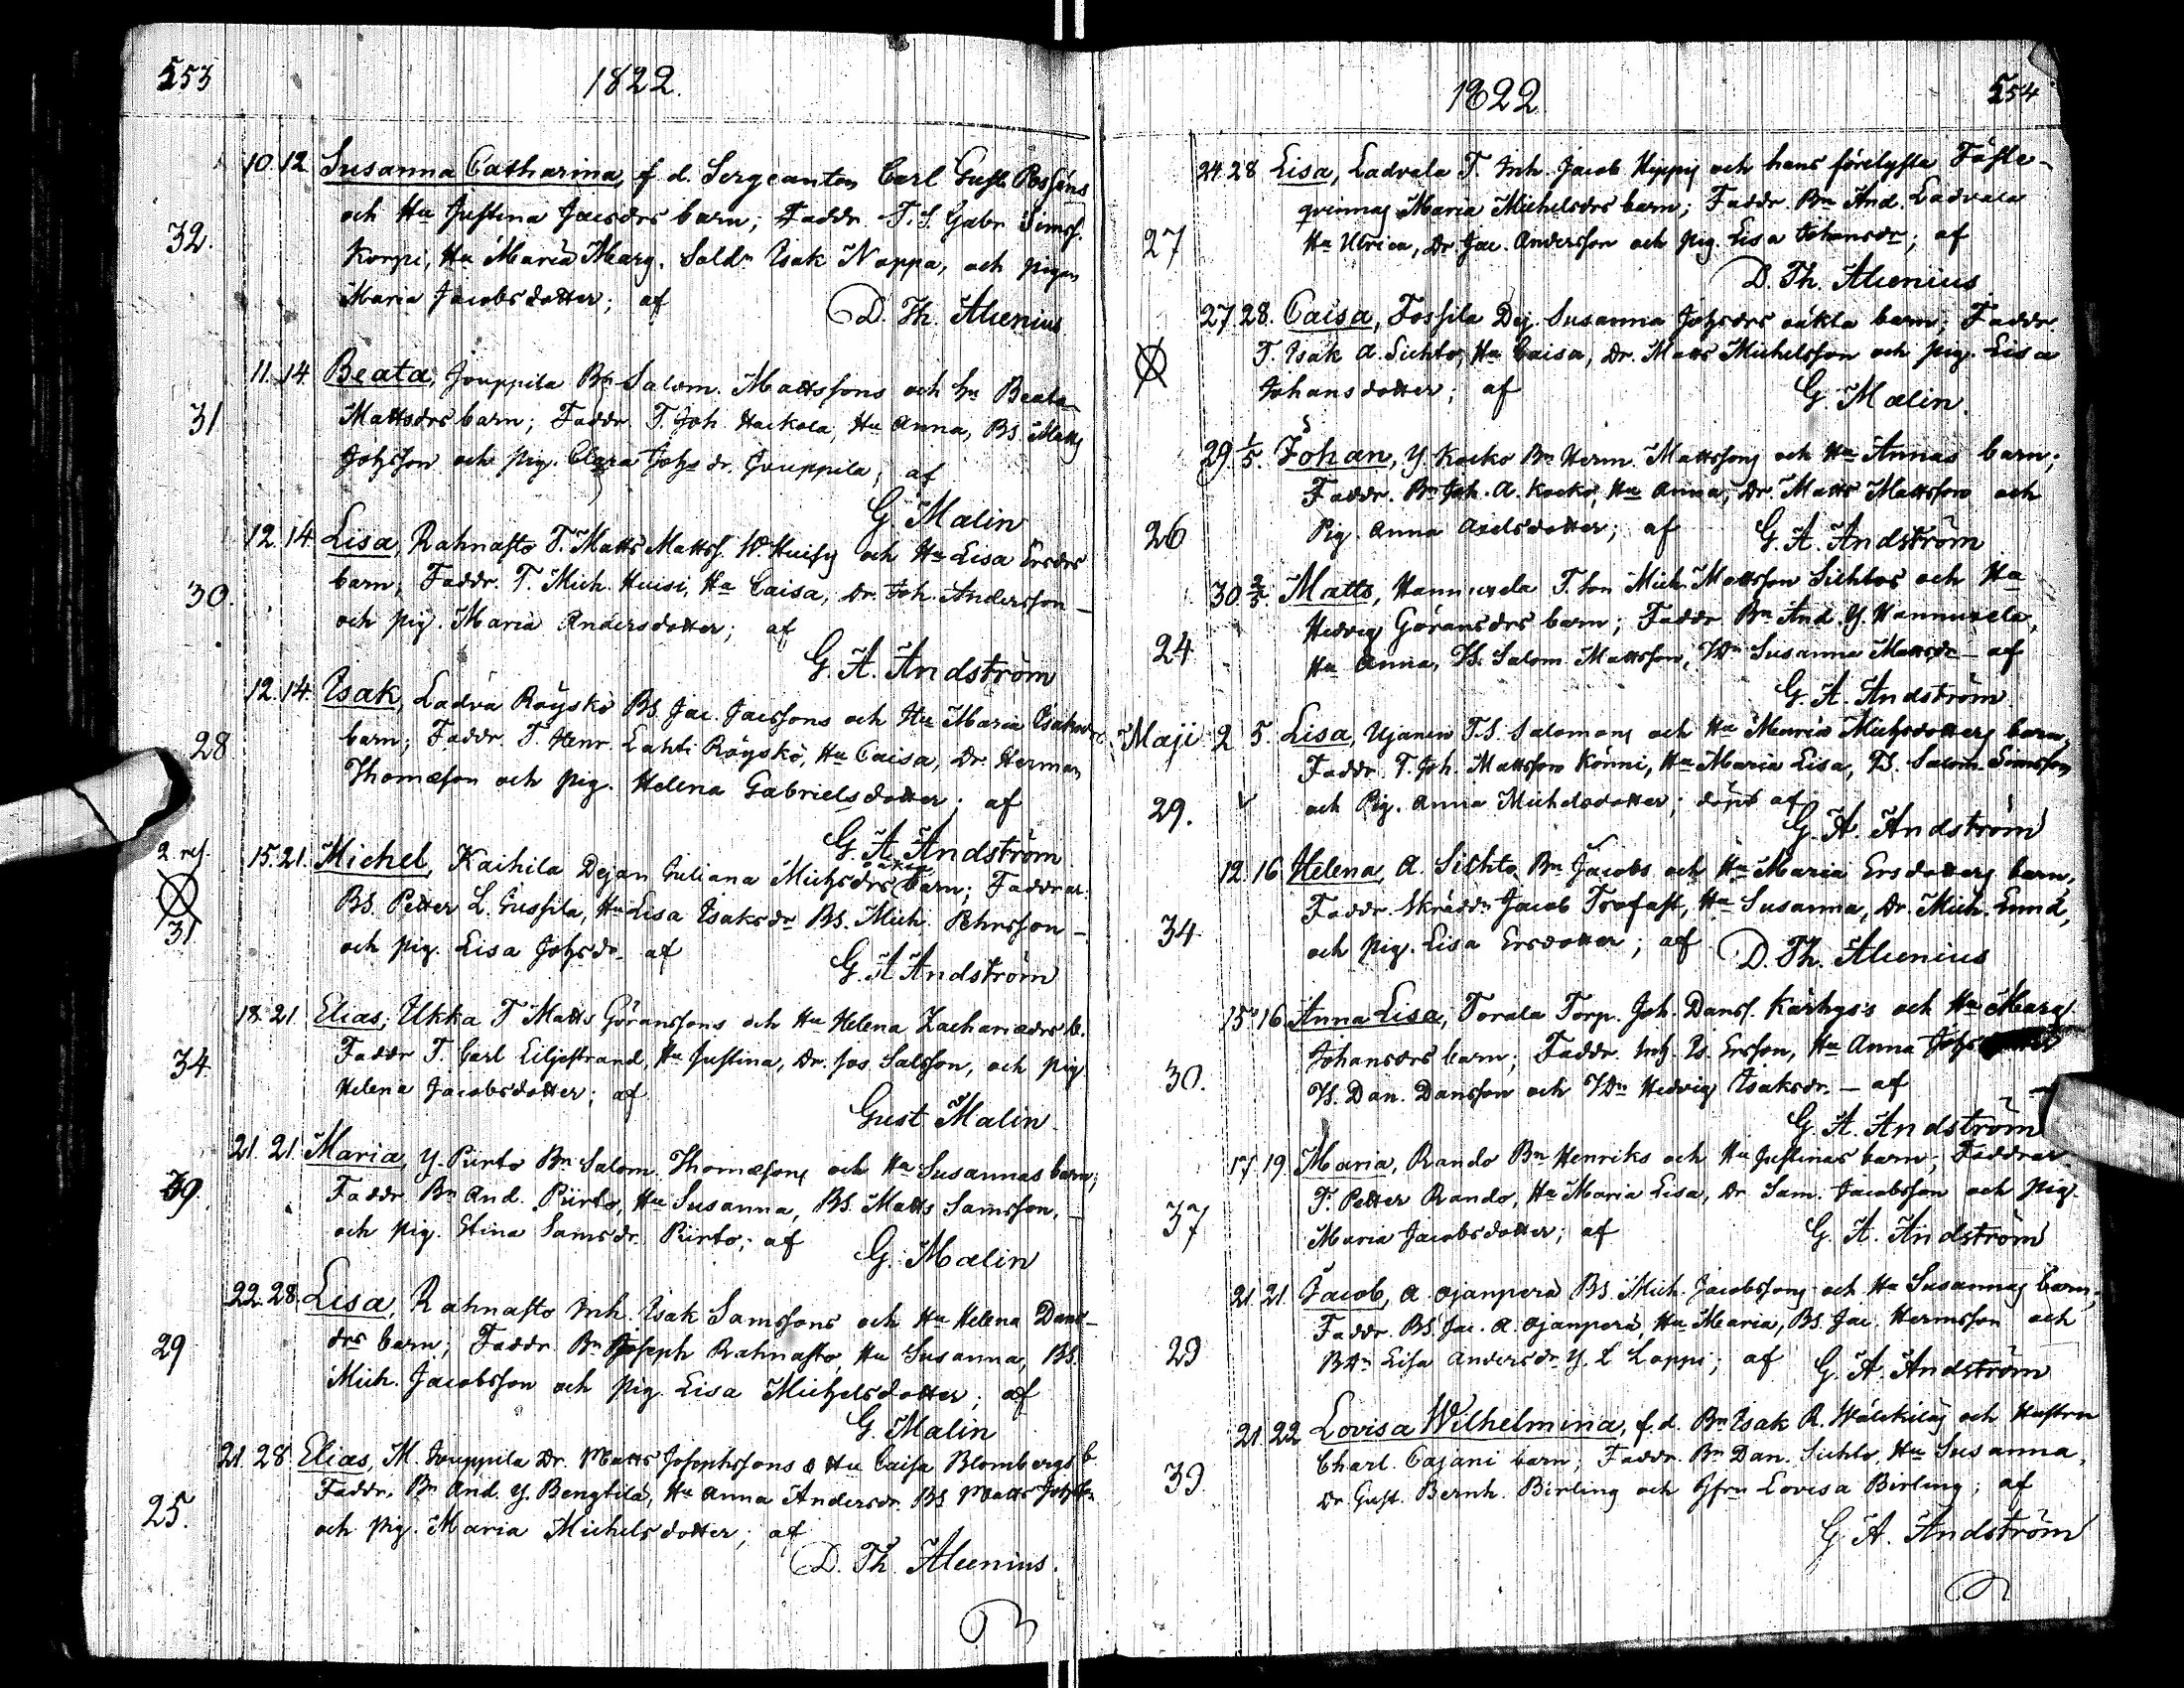 553
1822.
10. 12. Susanna Catharina, f. d. Sergeanten Carl Gust. Posséns
och Hu Justina Jacsdrs barn; Faddr. T. S. Gabr. Simss.
32.
Korpi, Hu Maria Marg. Soldn Isak Nappa, och pigan
Maria Jacobsdotter; af D. Th. Alcenius
11. 14. Beata, Jouppila Bn Salom. Mattssons och hu Beata
31
Mattsdrs barn; Faddr. T. Joh. Hackola, Hu Anna, BS. Matts
Johsson och pig. Clara Johs dr. Jouppila; af
G. Malin
12. 14. Lisa, Rahnasto T. Matts Mattss. W. Huisis och Hu Lisa Ersdrs
30.
barn; Faddr. T. Mich. Huisi, Hu Caisa, Dr. Joh. Andersson –
och pig. Maria Andersdotter; af
G. A. Andström
12. 14. Isak, Ladva Röyskö BS. Jac. Jacssons och Hu Maria Isaksdrs
28
barn; Faddr. T. Henr. Lahti Röyskö, Hu Caisa, Dr. Herman
Thomæson och pig. Helena Gabrielsdotter; af
G. A. Andström
2 ref. 15. 21. Michel, Kaihila Dejan Juliana Michsdrs oäkta barn; Faddrar.
BS. Petter L. Gussila, Hu Lisa Isaksdr BS. Mich. Pehrsson –
31
och pig. Lisa Johsdr af G. A. Andström
18. 21. Elias, Ukka T. Matts Göranssons och Hu Helena Zachariædrs b.
34
Faddr T. Carl Liljestrand, Hu Justina, Dr. Jos. Salsson, och pig.
Helena Jacobsdotter; af
Gust Malin.
21. 21. Maria, Y. Piirto Bn Salom. Thomæsons och Hu Susannas barn;
39.
Faddr. Bn And. Piirto, Hu Susanna, BS. Matts Samsson, –
och pig. Stina Samsdr. Piirto; af G. Malin
22. 28. Lisa, Rahnasto Inh. Isak Samssons och Hu Helena Dans-
29
drs barn; Faddr. Bn Joseph Rahnasto, Hu Susanna, BS.
Mich. Jacobsson och pig. Lisa Michelsdotter; af
G. Malin
21. 28. Elias, M. Jouppila Dr. Matts Josephssons & Hu Caisa Blombergs b.
25.
Faddr. Bn And. Y. Bengtila, Hu Anna Andersdr. BS Matts Johssn
och pig. Maria Michelsdotter; af
D. Th. Alcenius.
1822.
554
24. 28 Lisa, Ladvala T. Inh. Jacob Hippis och hans förelyfta Fäste-
qvinnas Maria Michelsdrs barn; Faddr. Bn And. Ladvala
27
Hu Ulrica, Dr Jac. Andersson och pig. Lisa Johansdr; af
D. Th. Alcenius.
27. 28. Caisa, Fossila Dej. Susanna Johsdrs oäkta barn; Faddr.
T. Isak A. Sichto, Hu Caisa, Dr. Matts Michelsson och pig. Lisa
Johansdotter; af G. Malin.
29. 1/5. Johan, Y. Kocko Bn Herm. Mattssons och Hu Annas barn;
Faddr. Bn Joh. A. Kocko, Hu Anna, Dr. Matts Mattsson och
26
Pig. Anna Axelsdotter; af G. A. Andström
30. 2/5. Matts, Hannuxela T. Son Mich. Mattsson Sichtos och Hu
Hedvig Göransdrs barn; Faddr Bn And. Y. Hannuxela,
24
Hu Anna, TS. Salom. Mattsson, TDr Susanna Mattsdr – af
G. A. Andström
Maji 2 5. Lisa, Ujanen T. S. Salomons och Hu Maria Michsdotters barn,
Faddr. T. Joh. Mattsson Könni, Hu Maria Lisa, TS. Salom. Simsson
29.
och Pig. Anna Michelsdotter; döpt af
G. A. Andström
12. 16 Helena, A. Sichto Bn Jacobs och Hu Maria Ersdotters barn,
Faddr. Skräddn Jacob Trofast, Hu Susanna, Dr. Mich. Lund,
34
och pig. Lisa Ersdotter; af D. Th. Alcenius
15. 16 Anna Lisa, Torala Torp. Joh. Danss. Kärhys's och Hu Marg.
Johansdrs barn; Faddr. Inh. Is. Ersson, Hu Anna Johs
30.
TS. Dan. Dansson och TDr Hedvig Isaksdr. – af
G. A. Andström
17. 19. Maria, Rando Bn Henriks och Hu Justinas barn; Faddrar
T. Petter Rando, Hu Maria Lisa, Dr. Sam. Jacobsson och pig.
37
Maria Jacobsdotter; af G. A. Andström
21. 21. Jacob, A. Ojanperä BS. Mich. Jacobssons och Hu Susannas barn,
Faddr. BS. Jac. A. Ojanperä, Hu Maria, BS. Jac. Hermsson och
29
BDr Lisa Andersdr Y. L. Loppi; af G. A. Andström
21. 22 Lovisa Wilhelmina, f. d. Bn Isak R. Wälckiläs och Hustru
Charl. Cajani barn; Faddr. Bn Dan. Sichto, Hu Susanna,
39.
Dr. Gust. Bernh. Birling och Jfrn Lovisa Birling; af
G. A. Andström